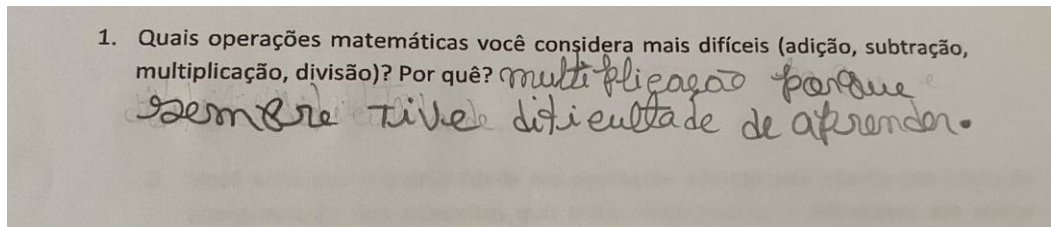 1. Quais operações matemáticas você considera mais difíceis (adição, subtração,
multiplicação, divisão)? Por quê? multiplicação porque
sempre tive dificultade de aprender.